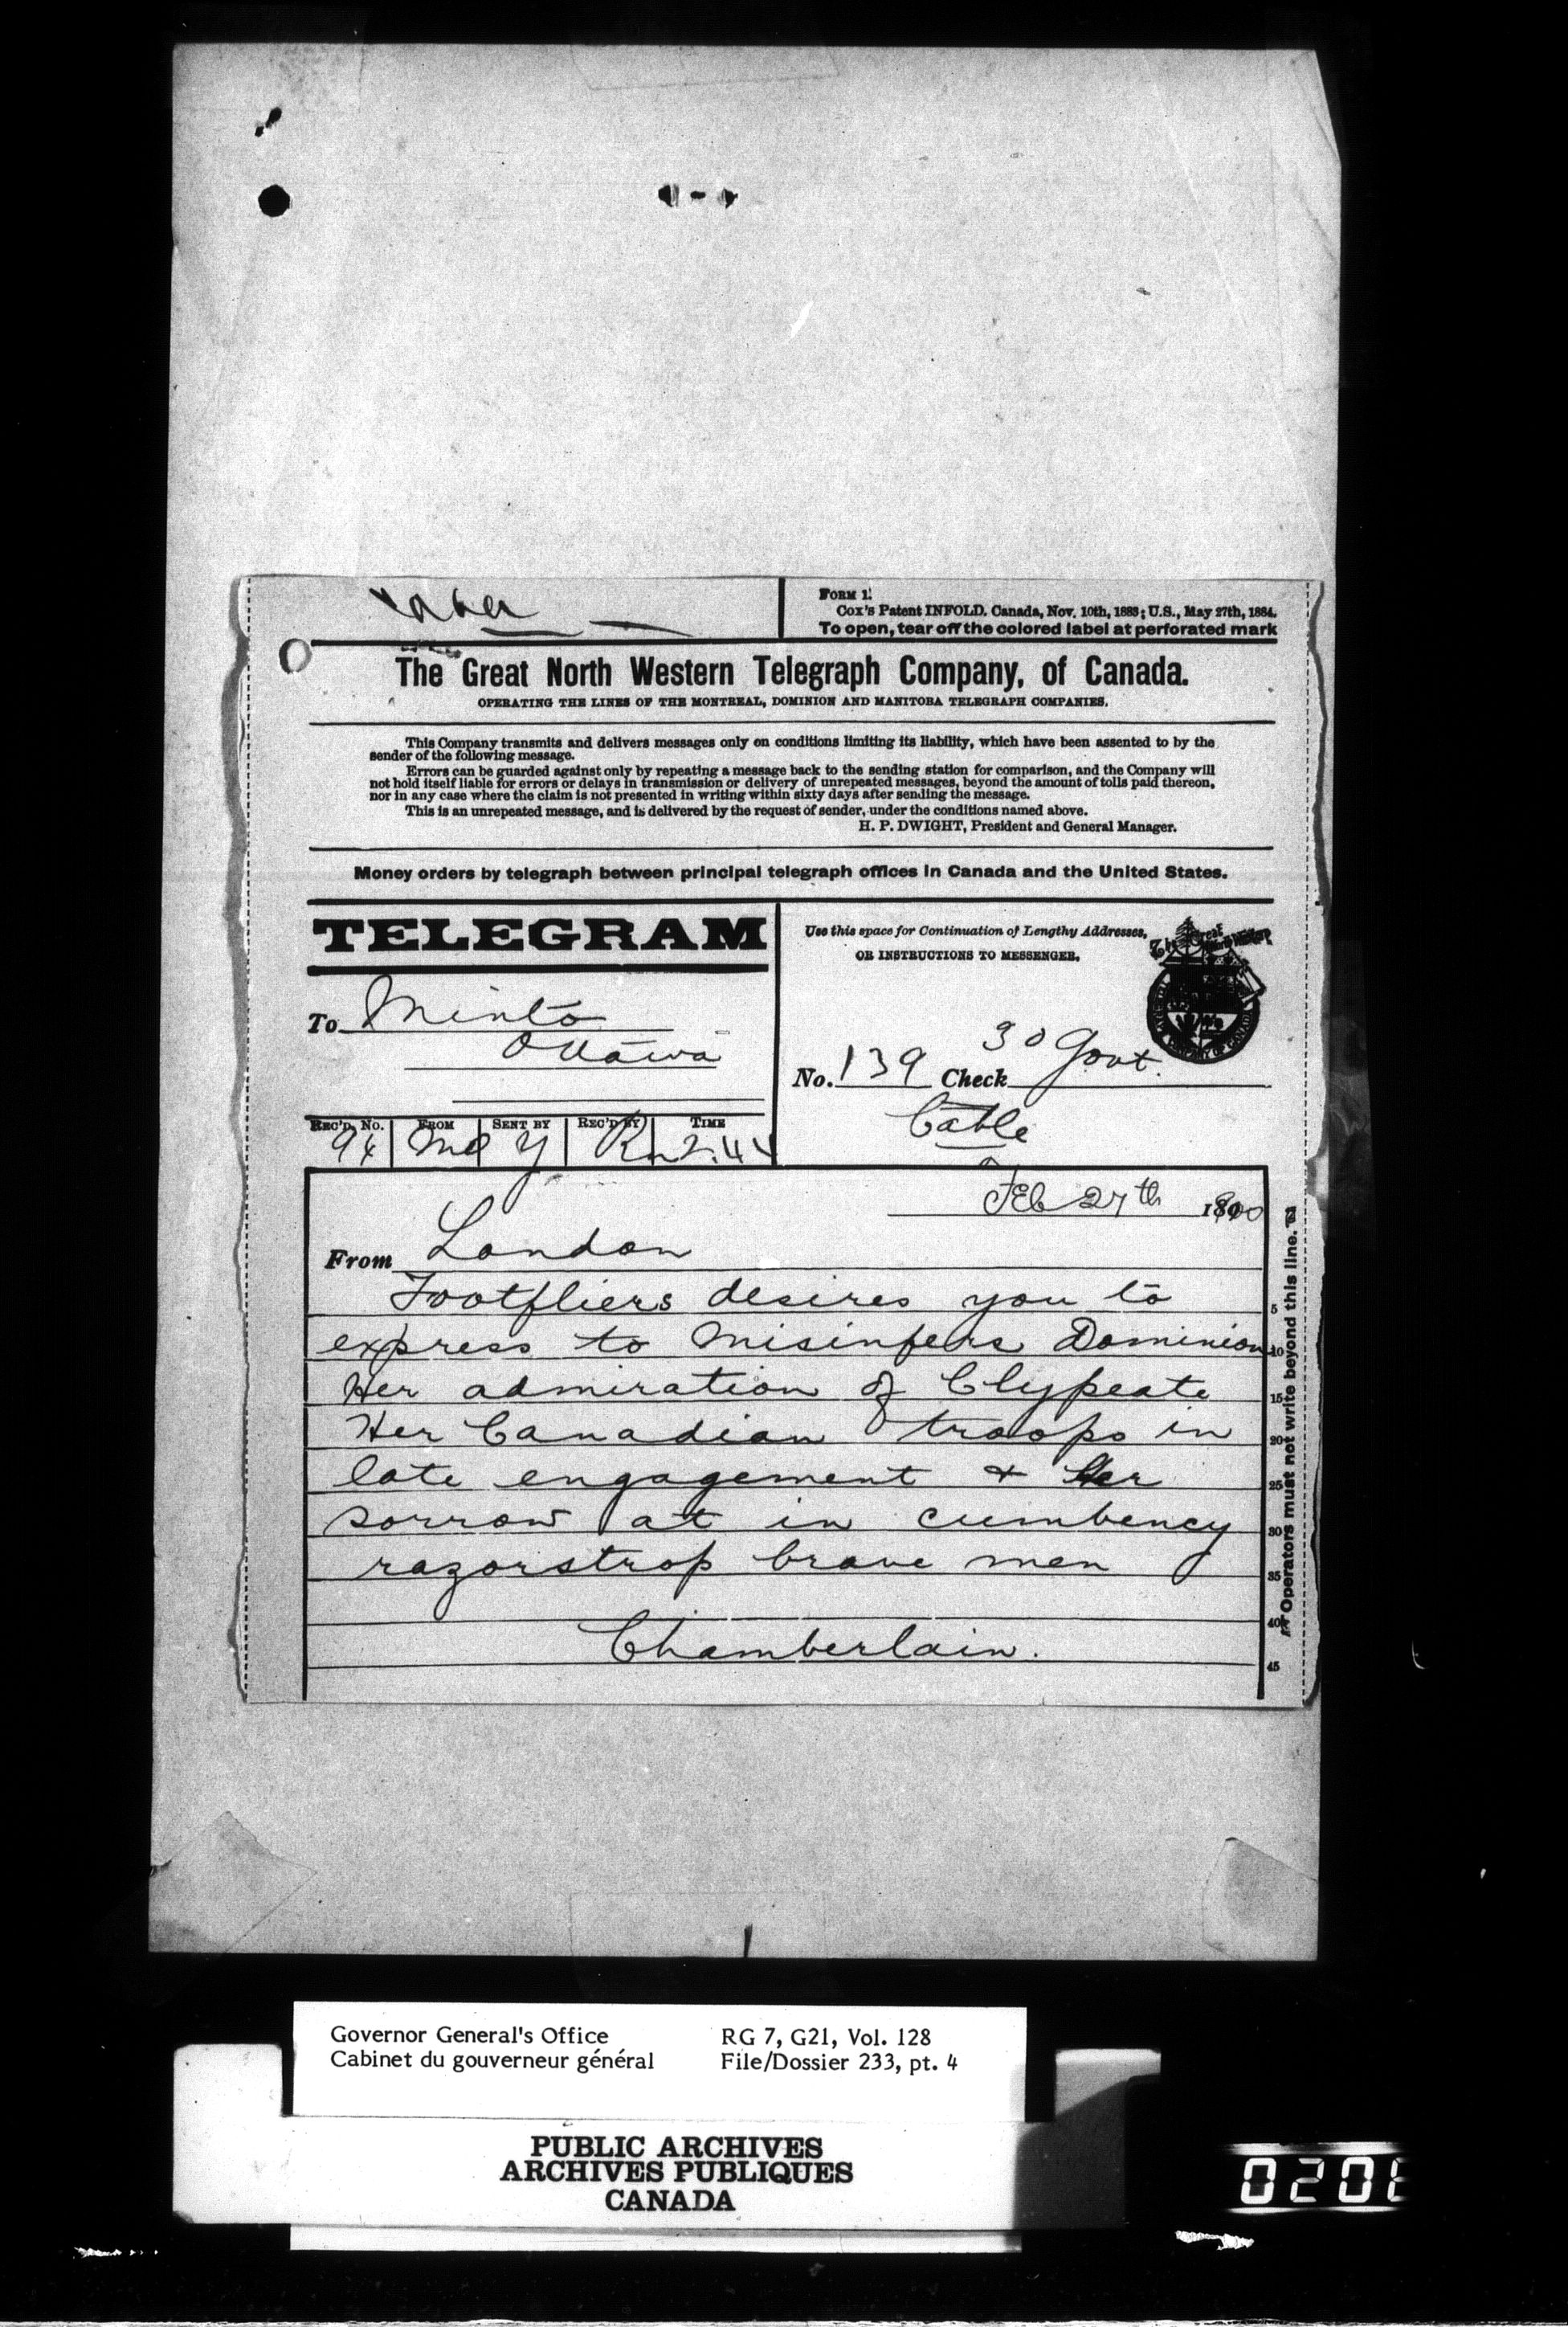 FORM 1.
Cox's Patent INFOLD. Canada, Nov. 10th, 1883; U.S., May 27th, 1884.
To open, tear off the colored label at perforated mark
The Great North Western Telegraph Company, of Canada.
OPERATING THE LINES OF THE MONTREAL, DOMINION AND MANITOBA TELEGRAPH COMPANIES.
This Company transmits and delivers messages only on conditions limiting its liability, which have been assented to by the
sender of the following message.
Errors can be guarded against only by repeating a message back to the sending station for comparison, and the Company will
not hold itself liable for errors or delays in transmission or delivery of unrepeated messages, beyond the amount of tolls paid thereon,
nor in any case where the claim is not presented in writing within sixty days after sending the message.
This is an unrepeated message, and is delivered by the request of sender, under the conditions named above.
H. P. DWIGHT, President and General Manager.
Money orders by telegraph between principal telegraph offices in Canada and the United States.
TELEGRAM
To Minto
Ottawa
Use this space for Continuation of Lengthy Addresses,
OR INSTRUCTIONS TO MESSENGER.
No. 139 Check 30 Govt.
Cable
REC'D. No. FROM SENT BY REC'D BY TIME
94 Mo Y 2.44
Feb 27th 1900
From London
Footfliers desires you to 5
express to Misinfers Dominion 10
Her admiration of Clypeate 15
Her Canadian troops in 20
late engagement & Her 25
sorrow at in cumbency 30
razorstrop brave men 35
40
Chamberlain. 45
Operators must not write beyond this line.
Governor General's Office RG 7, G21, Vol. 128
Cabinet du gouverneur général File/Dossier 233, pt. 4
PUBLIC ARCHIVES
ARCHIVES PUBLIQUES
CANADA